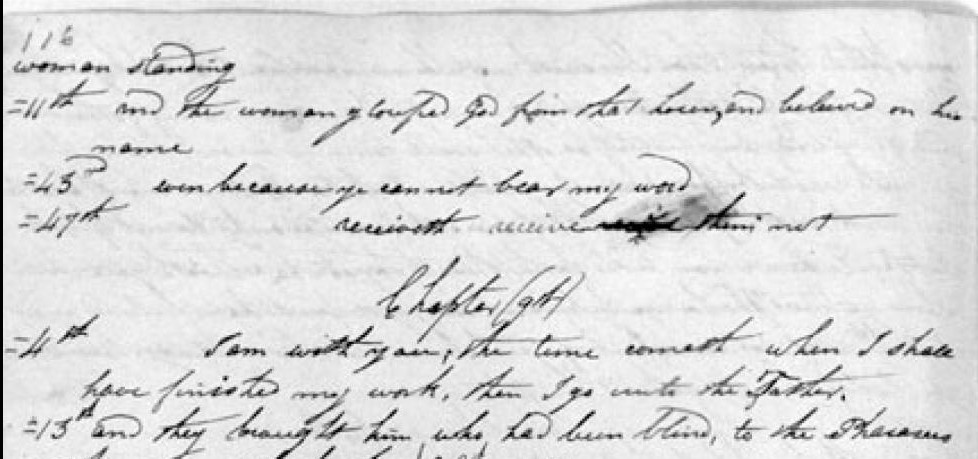 116
woman standing
=11th and the woman glorified God from that hour, and believed on his
name
=43rd even because ye cannot bear my word
=47th receiveth receive them not
Chapter (9th)
=4th I am with you; the time cometh when I shall
have finished my work, then I go unto the Father.
=13th and they brought him who had been blind, to the Pharasees